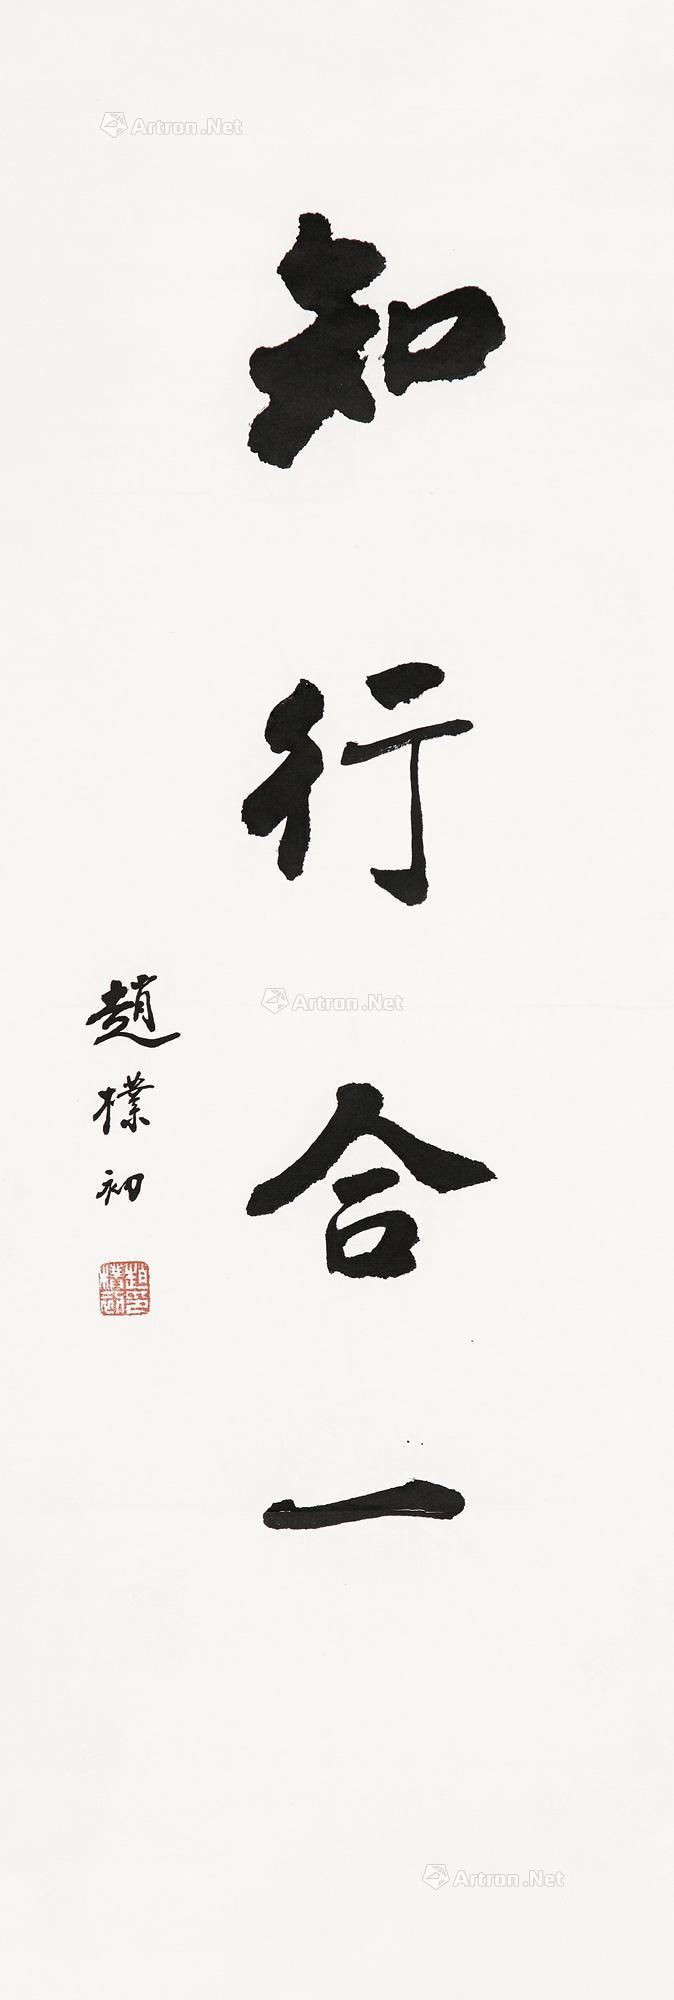 知行合一
趙樸初
趙樸初印
Artron.Net
Artron.Net
Artron.Net